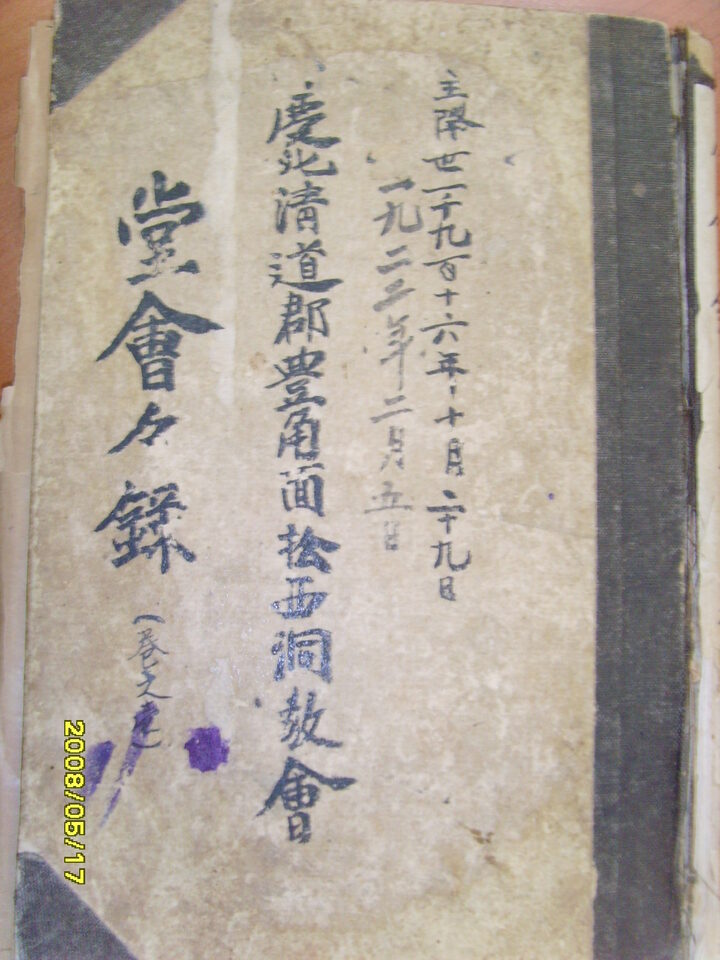 主降世一千九百十六年十月二十九日
一九二二年二月五日
慶北淸道郡豊角面松西洞敎會
堂會々錄
(卷之壹)
2008/05/17